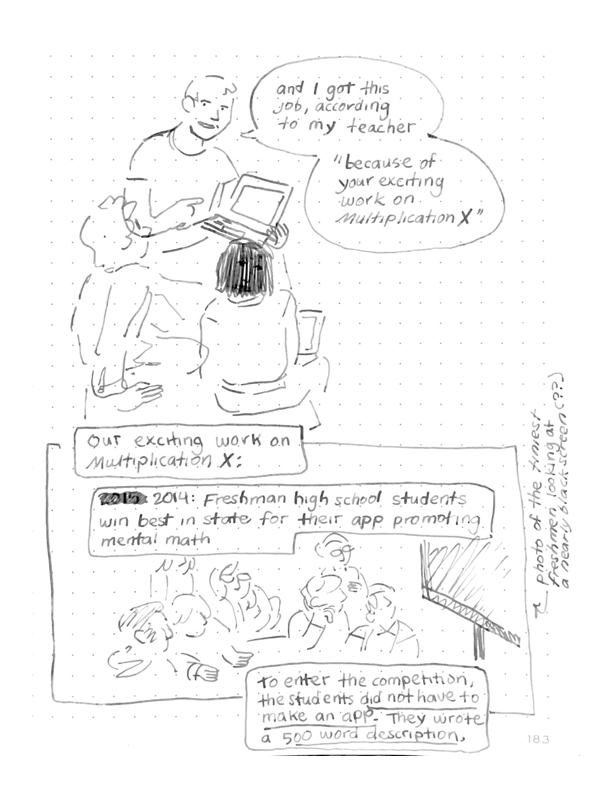 and I got this
job, according
to my teacher
"because of
your exciting
work on
Multiplication X"
Our exciting work on
Multiplication X:
2014: Freshman high school students
win best in state for their app promoting
mental math
photo of the tiniest
freshmen looking at
a nearly black screen (??)
to enter the competition,
the students did not have to
make an app. They wrote
a 500 word description.
183